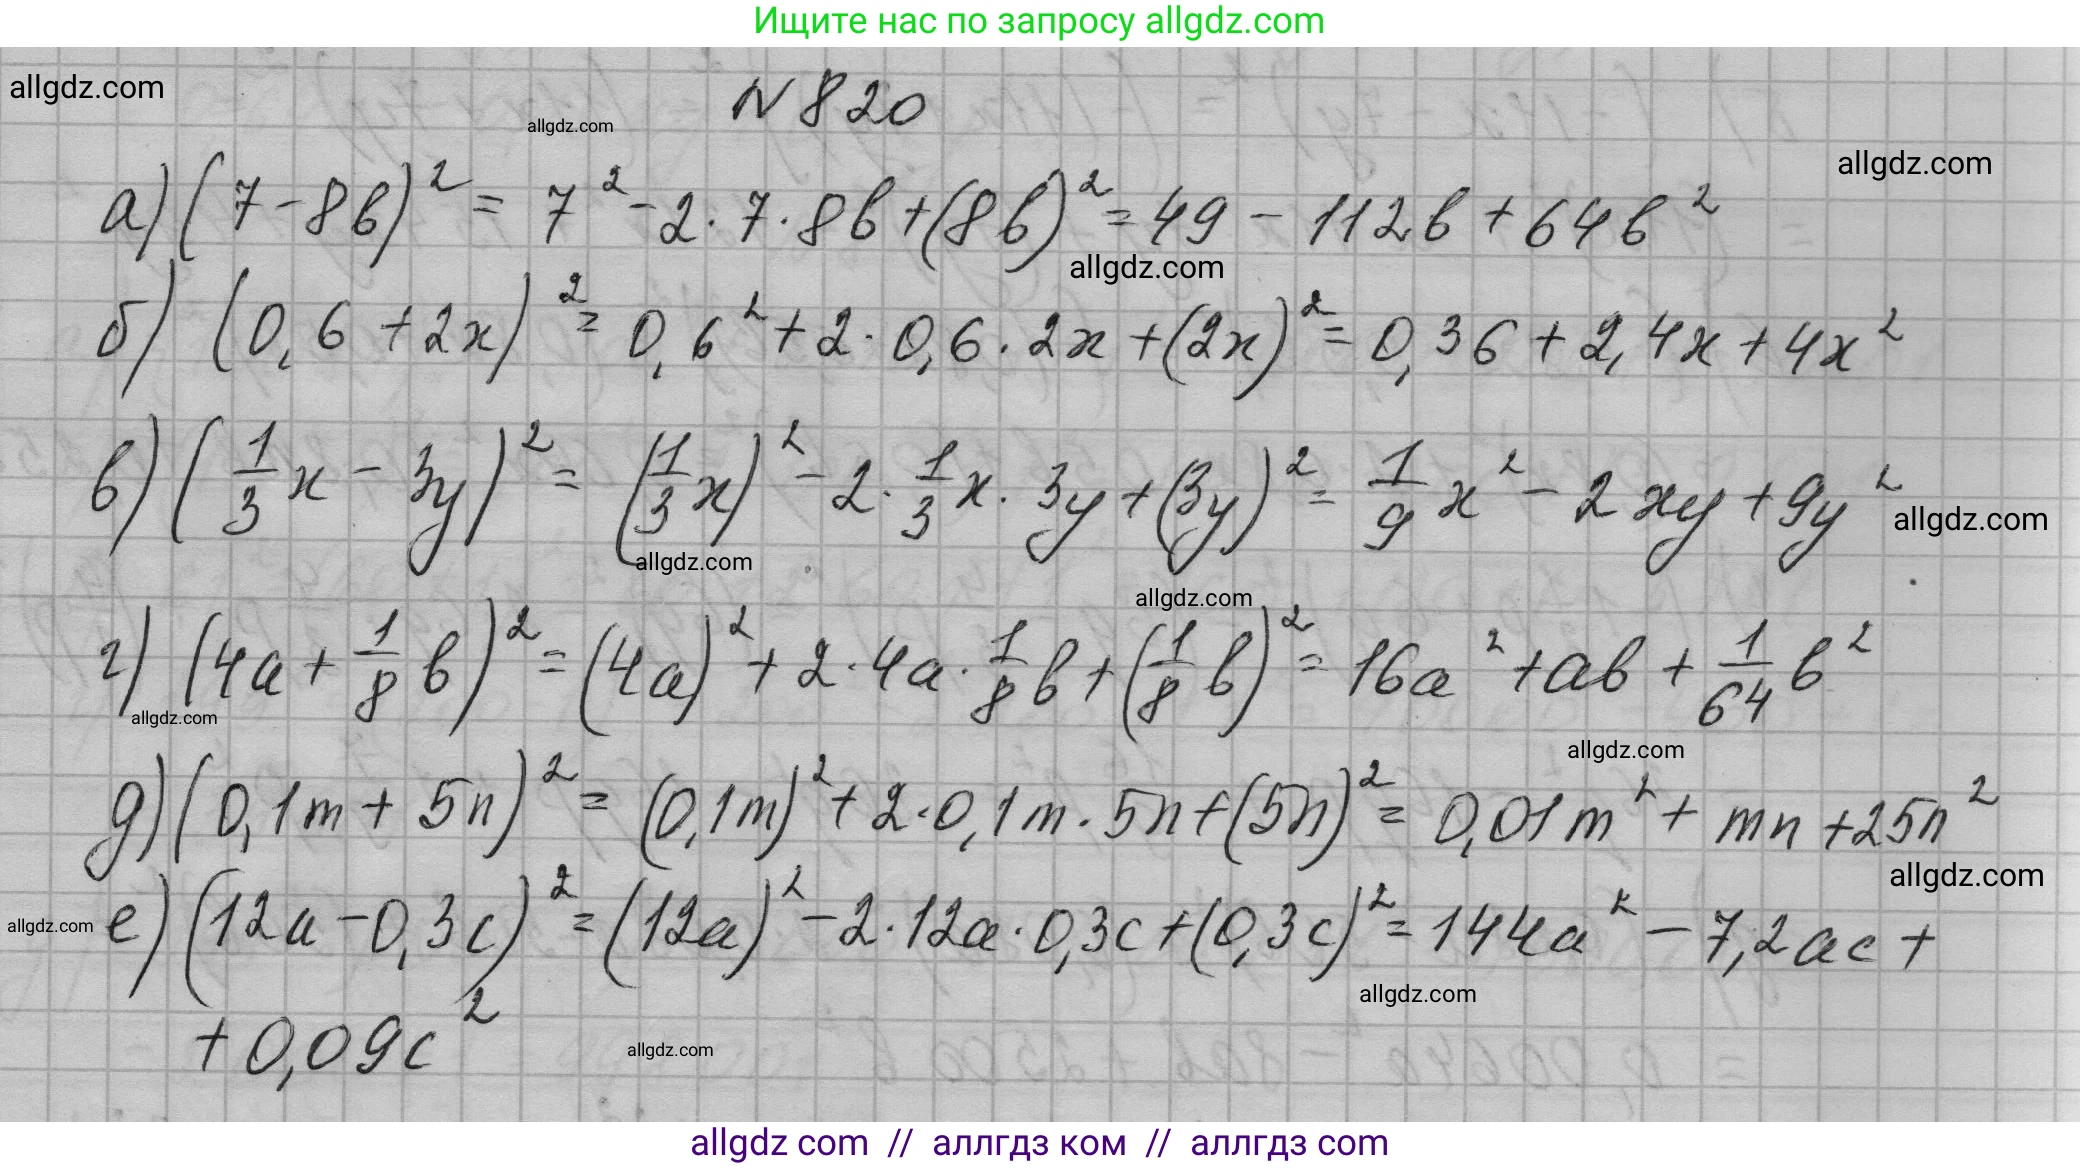 Ищите нас по запросу allgdz.com
allgdz.com
N 820
allgdz.com
allgdz.com
а) (7 - 8b)² = 7² - 2 · 7 · 8b + (8b)² = 49 - 112b + 64b²
allgdz.com
б) (0,6 + 2x)² = 0,6² + 2 · 0,6 · 2x + (2x)² = 0,36 + 2,4x + 4x²
в) (1/3 x - 3y)² = (1/3 x)² - 2 · 1/3 x · 3y + (3y)² = 1/9 x² - 2xy + 9y²
allgdz.com
allgdz.com
allgdz.com
г) (4a + 1/8 b)² = (4a)² + 2 · 4a · 1/8 b + (1/8 b)² = 16a² + ab + 1/64 b²
allgdz.com
allgdz.com
д) (0,1m + 5n)² = (0,1m)² + 2 · 0,1m · 5n + (5n)² = 0,01m² + mn + 25n²
allgdz.com
allgdz.com
е) (12a - 0,3c)² = (12a)² - 2 · 12a · 0,3c + (0,3c)² = 144a² - 7,2ac +
allgdz.com
+ 0,09c²
allgdz.com
allgdz com // аллгдз ком // аллгдз com